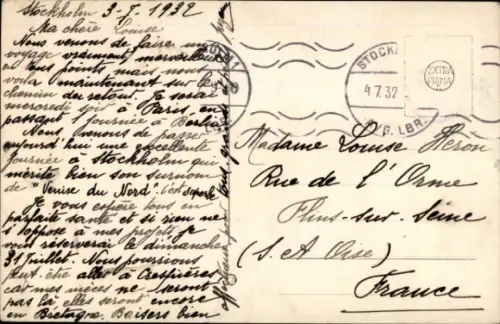 Stockholm 3-7. 1932
Ma chère Louise
Nous venons de faire un
voyage vraiment merveilleux
à tous points mais nous
voilà maintenant sur le
chemin du retour. Je serai
mercredi soir à Paris, en
passant 1 journée à Berlin
Nous venons de passer
aujourd'hui une excellente
journée à Stockholm qui
mérite bien son surnom
de "Venise du Nord" c'est superbe
Je vous espère tous en
parfaite santé et si rien ne
s'oppose à mes projets je
vous réserverai le dimanche
31 juillet. Nous pourrions
peut-être aller à Crespières
car mes nièces ne seront
pas là elles seront encore
en Bretagne. Baisers bien
affectueux pour tous grands
STOCK
4.7.32
LBR.
EXTRA
Madame Louise Héron
Rue de l'Orme
Flins-sur-Seine
(S. et Oise)
France